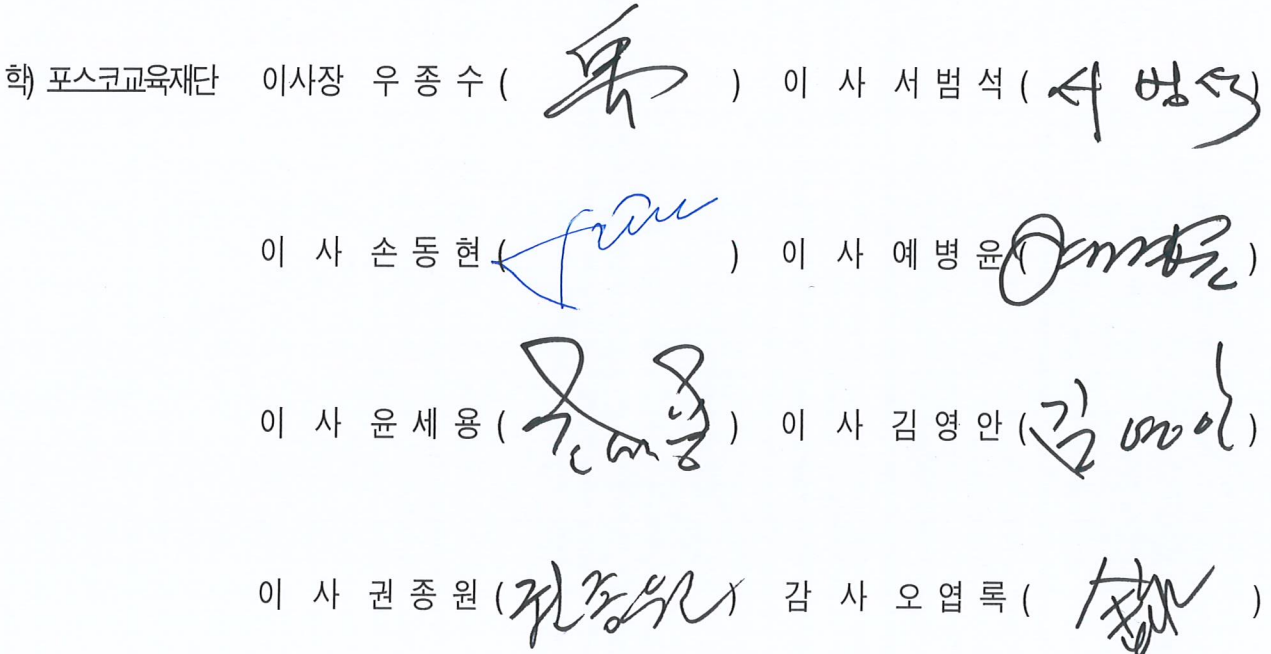 학) 포스코교육재단 이사장 우 종 수 ( ) 이 사 서 범 석 ( 서 범 석 )
이 사 손 동 현 ( ) 이 사 예 병 윤 ( )
이 사 윤 세 용 ( ) 이 사 김 영 안 ( 김 영 안 )
이 사 권 종 원 ( 권 종 원 ) 감 사 오 엽 록 ( )